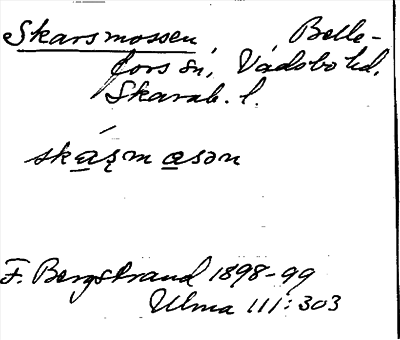 Skarsmossen, Belle-
fors sn, Vadsbo hd,
Skarab. l.
skaʂmɑsən
F. Bergstrand 1898-99
Ulma 111:303